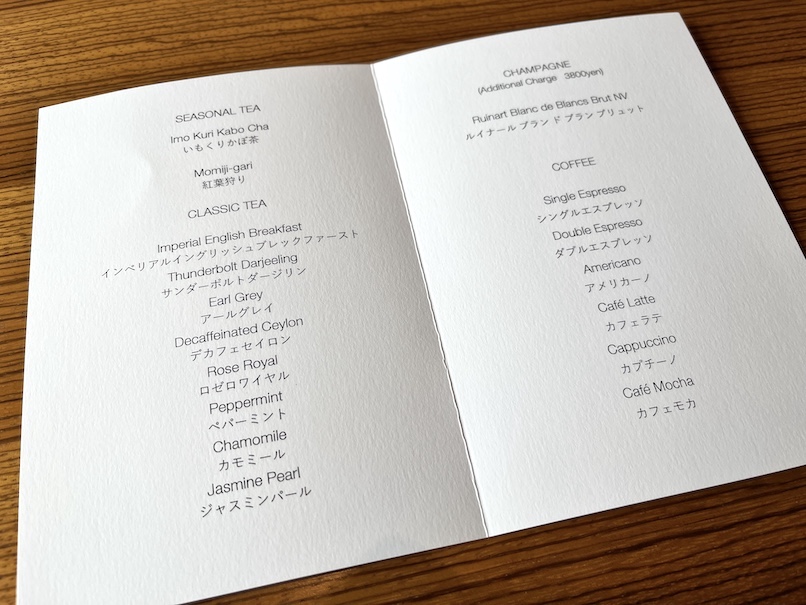 SEASONAL TEA
Imo Kuri Kabo Cha
いもくりかぼ茶
Momiji-gari
紅葉狩り
CLASSIC TEA
Imperial English Breakfast
インペリアルイングリッシュブレックファースト
Thunderbolt Darjeeling
サンダーボルトダージリン
Earl Grey
アールグレイ
Decaffeinated Ceylon
デカフェセイロン
Rose Royal
ロゼロワイヤル
Peppermint
ペパーミント
Chamomile
カモミール
Jasmine Pearl
ジャスミンパール
CHAMPAGNE
(Additional Charge 3800yen)
Ruinart Blanc de Blancs Brut NV
ルイナール ブラン ド ブラン ブリュット
COFFEE
Single Espresso
シングルエスプレッソ
Double Espresso
ダブルエスプレッソ
Americano
アメリカーノ
Café Latte
カフェラテ
Cappuccino
カプチーノ
Café Mocha
カフェモカ